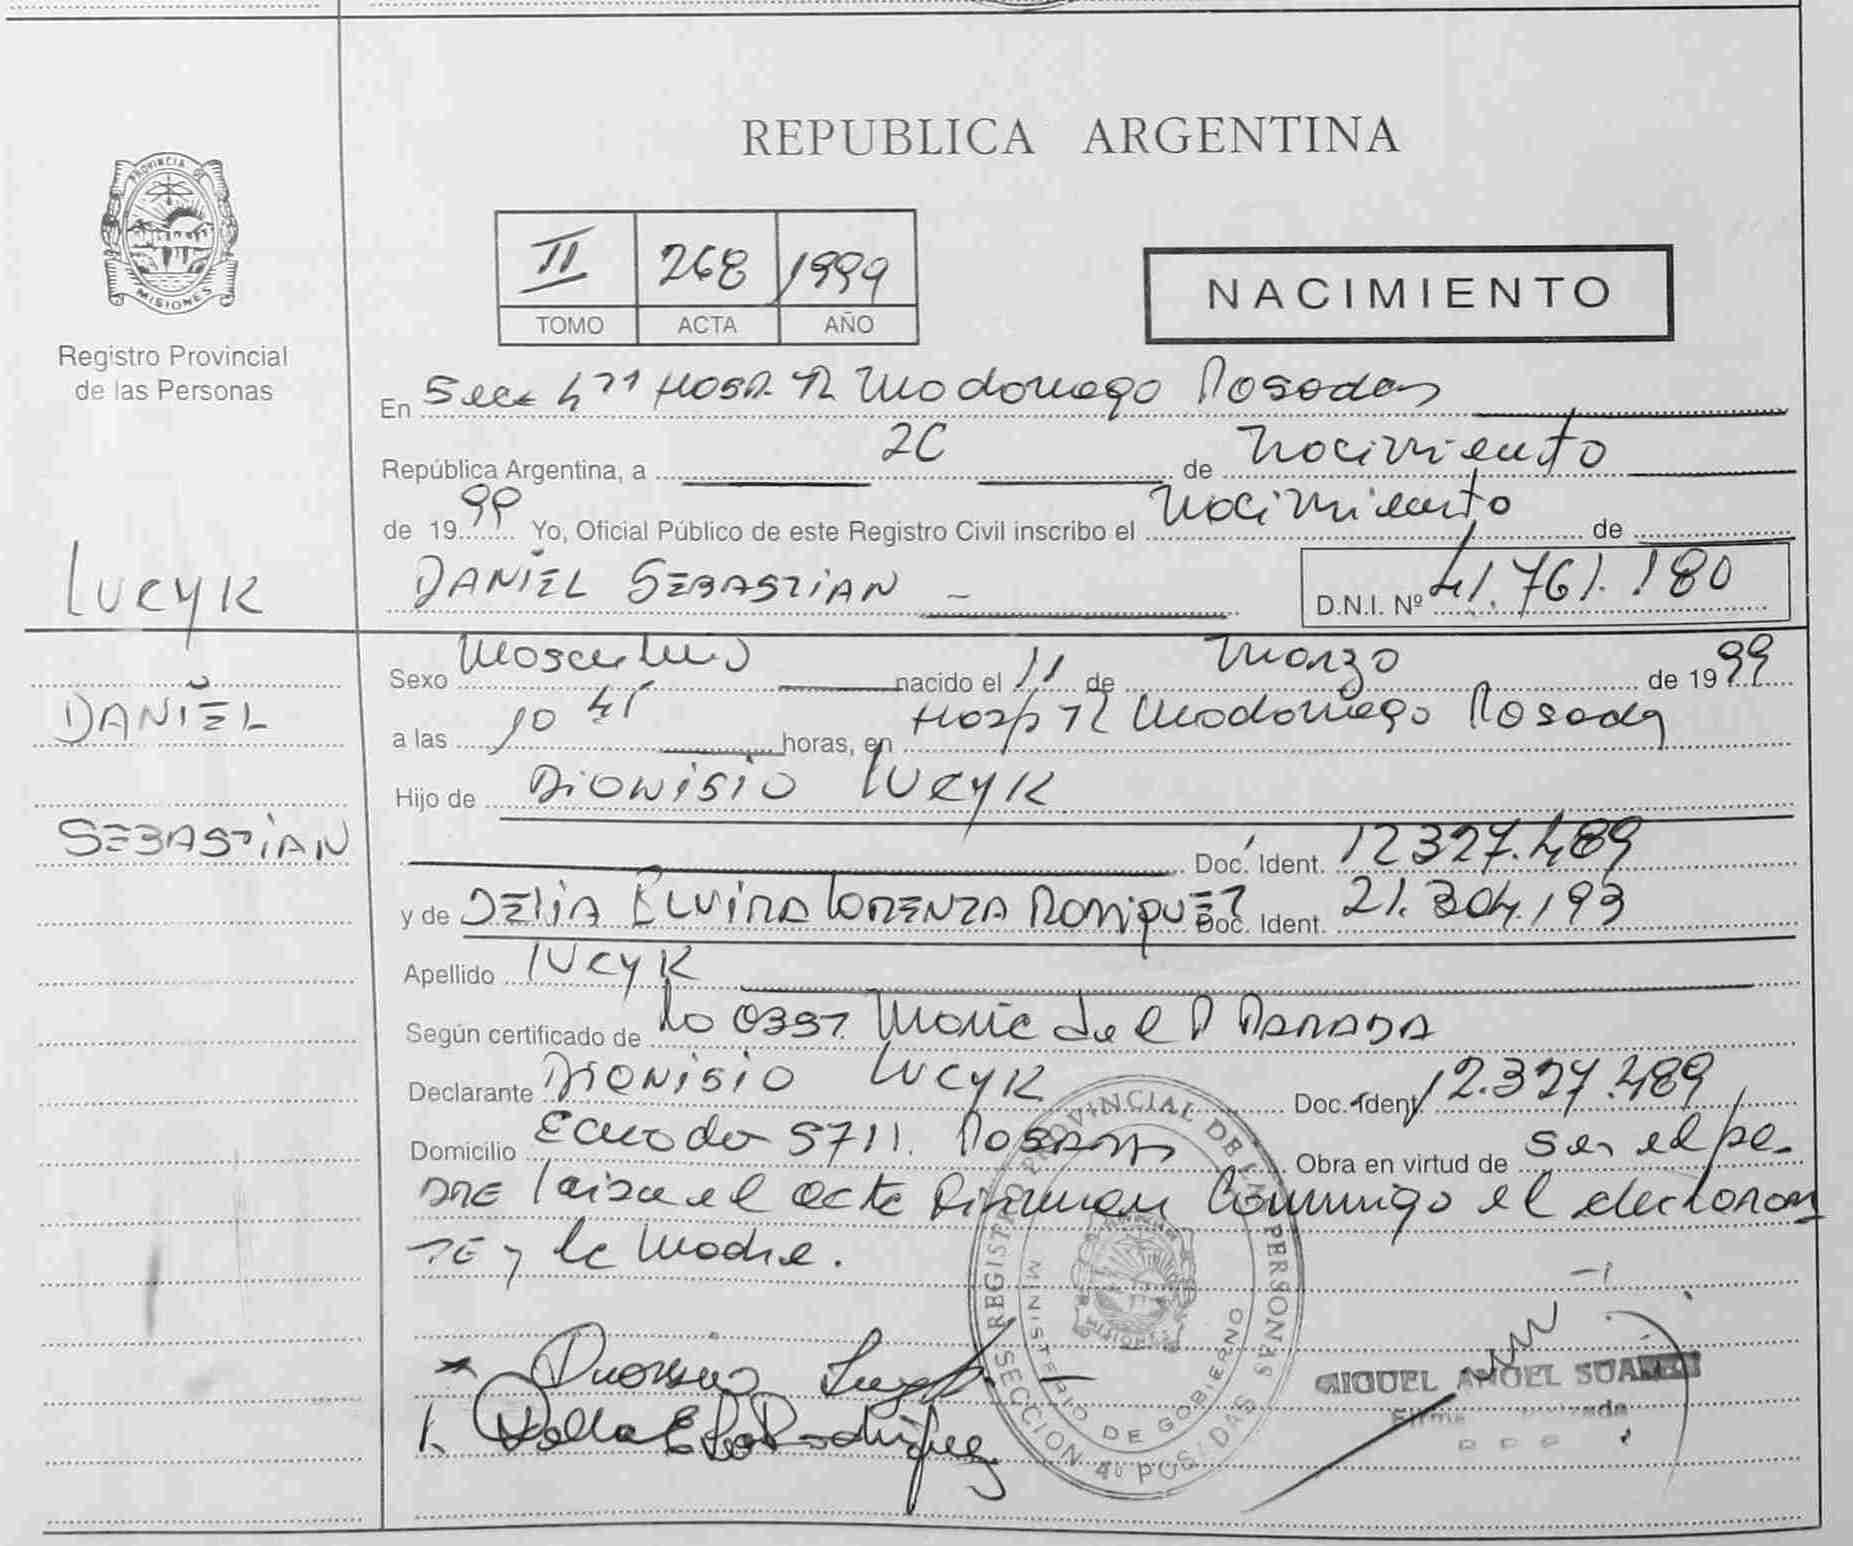 REPUBLICA ARGENTINA
PROVINCIA DE
MISIONES
Registro Provincial
de las Personas
II 268 1999
TOMO ACTA AÑO
NACIMIENTO
En Secc 4ta Hosp. R Madariaga Posadas
República Argentina, a de Nacimiento
de 1999 Yo, Oficial Público de este Registro Civil inscribo el Nacimiento de
LUCYK
DANIEL SEBASTIAN –
D.N.I. Nº 41.761.180
DANIEL
SEBASTIAN
Sexo Masculino nacido el 11 de Marzo de 1999
a las 10 45 horas, en Hosp R Madariaga Posadas
Hijo de DIONISIO LUCYK
Doc. Ident. 12327.489
y de DELIA ELVIRA LORENZA RODRIGUEZ Doc. Ident. 21.304.193
Apellido LUCYK
Según certificado de La OBST. Maria del P PARADA
Declarante DIONISIO LUCYK Doc. Ident. 12.327.489
Domicilio Ecuador 5711. POSADAS Obra en virtud de ser el pa-
DRE leida el acta firman conmigo el declaran
TE y la Madre.
REGISTRO PROVINCIAL DE LAS PERSONAS
MINISTERIO DE GOBIERNO
SECCION 4ta POSADAS
MISIONES
MIGUEL ANGEL SUAREZ
Firma